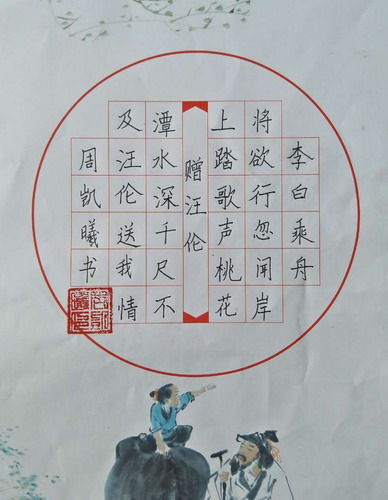 李白乘舟
将欲行忽闻岸
上踏歌声桃花
赠汪伦
潭水深千尺不
及汪伦送我情
周凯曦书